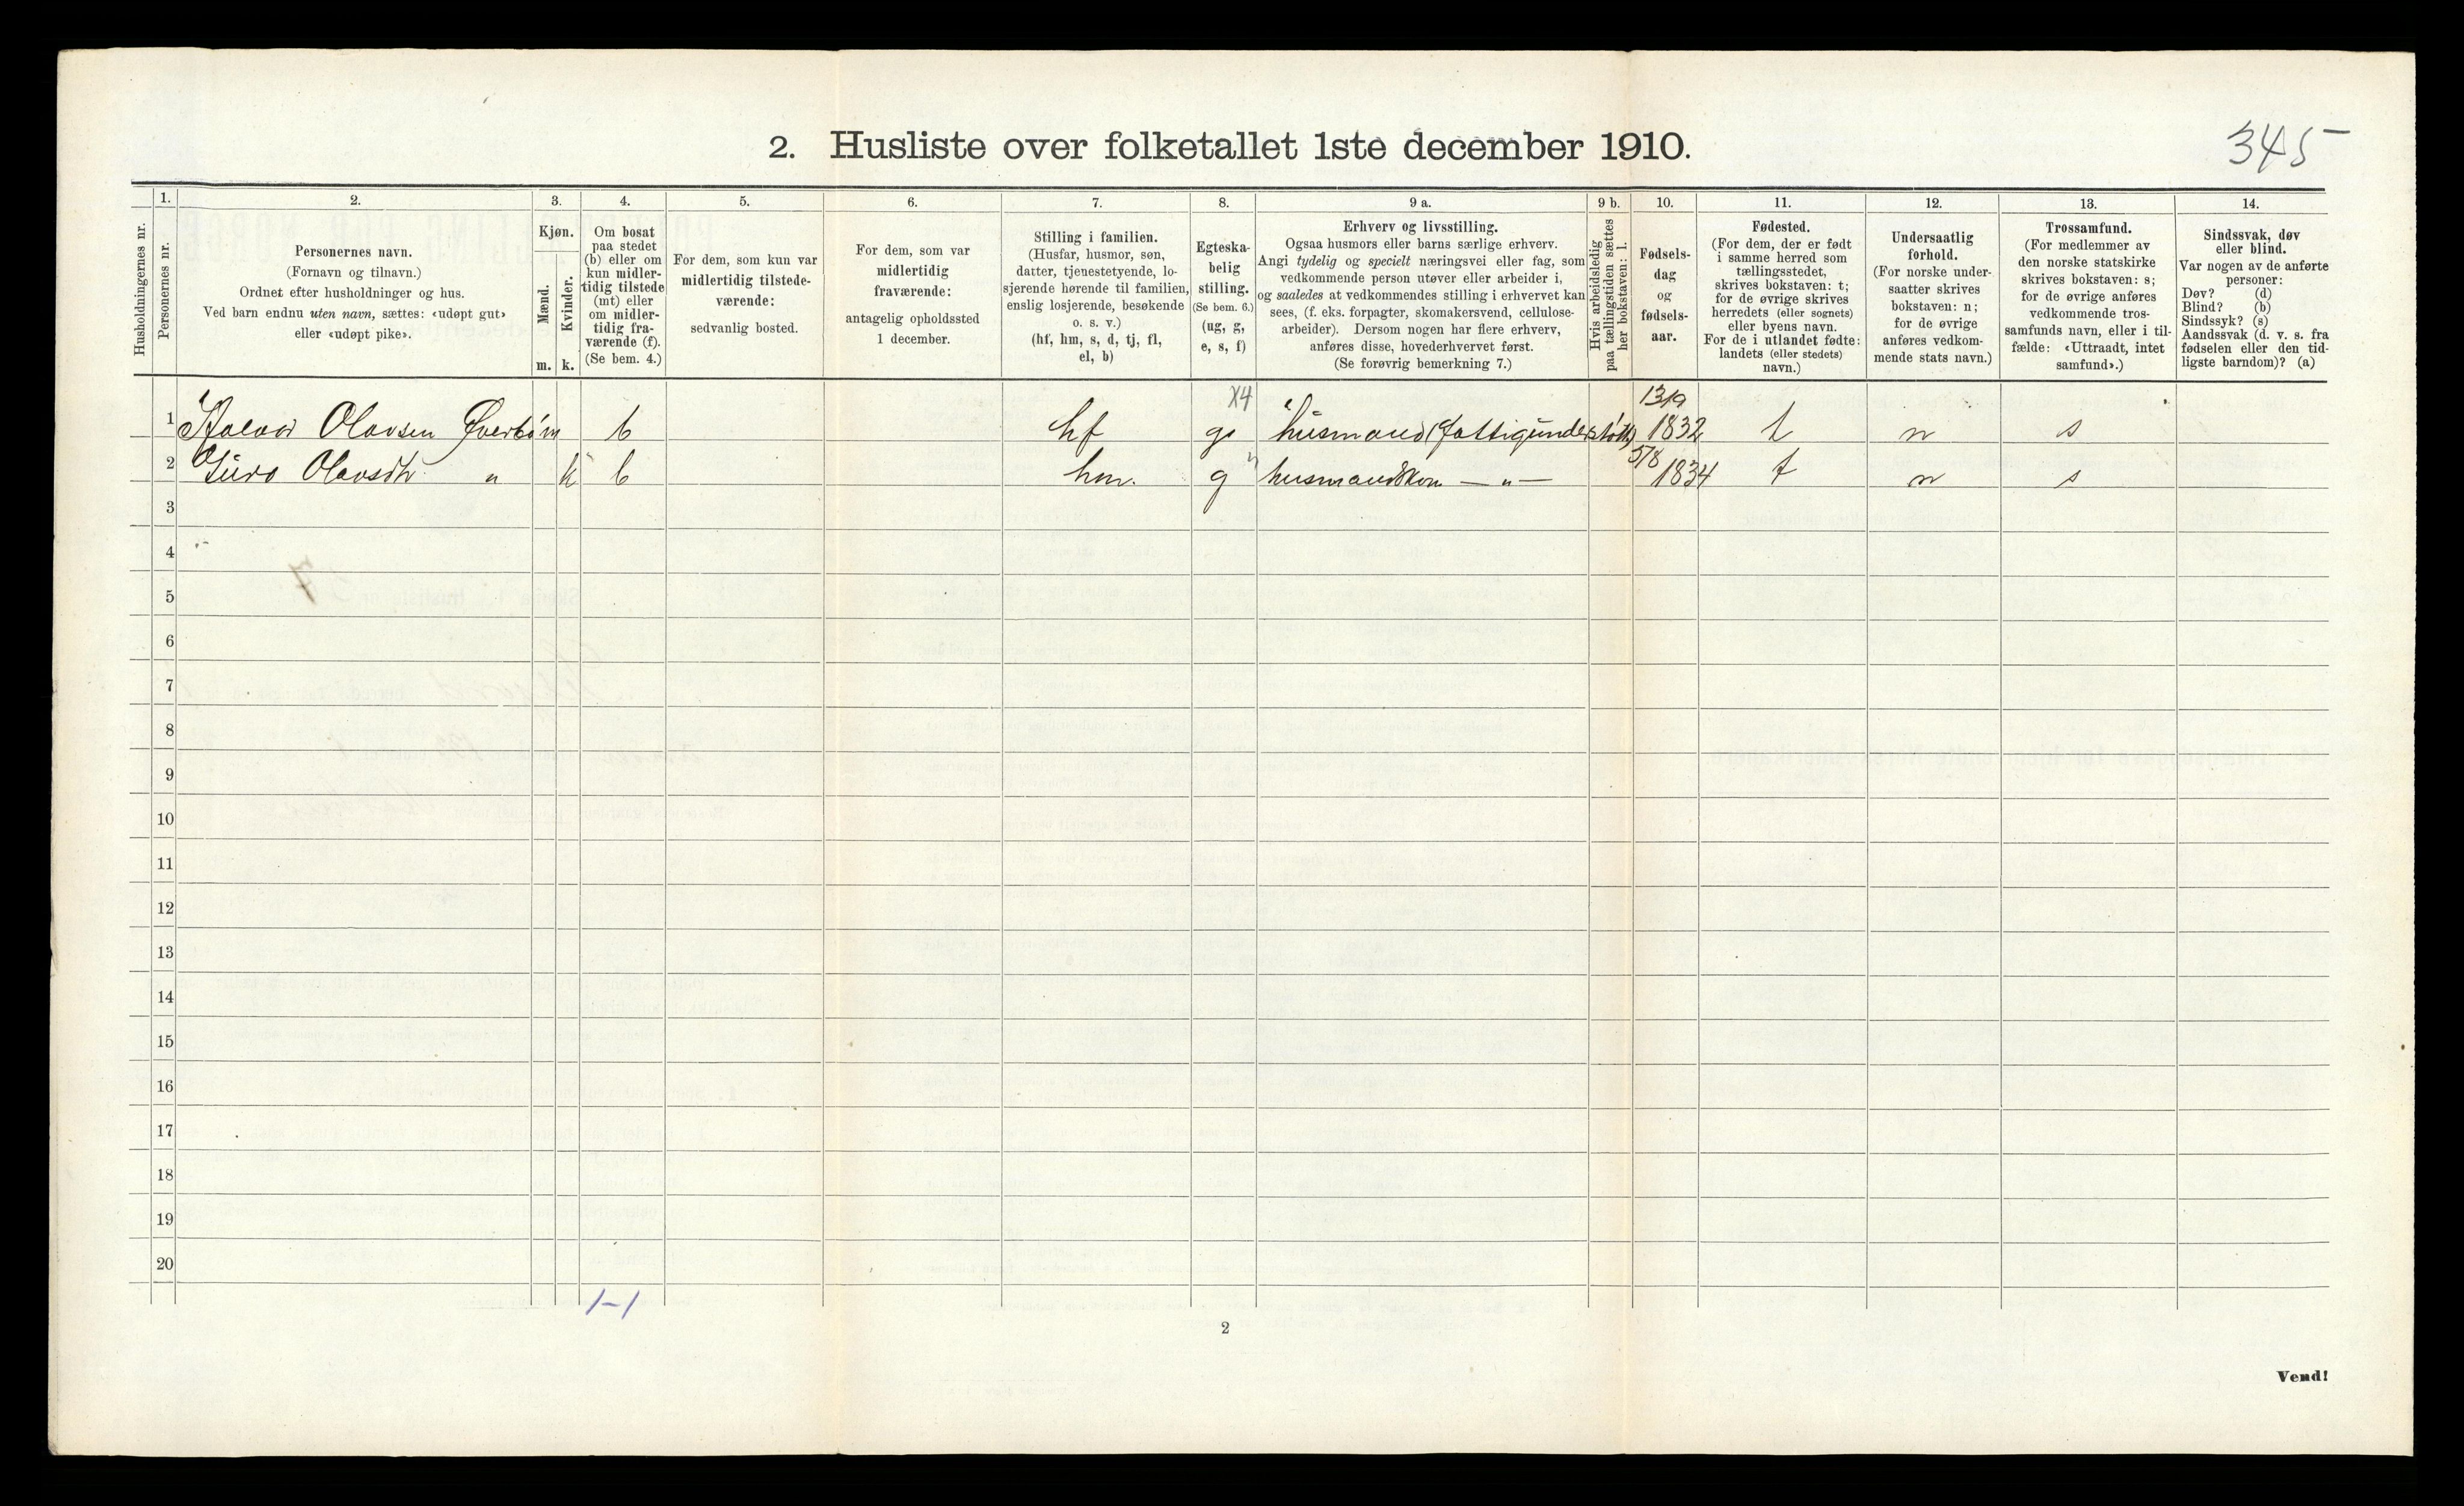 345
2. Husliste over folketallet 1ste december 1910.
Husholdningernes nr.
1.
Personernes nr.
2.
Personernes navn.
(Fornavn og tilnavn.)
Ordnet efter husholdninger og hus.
Ved barn endnu uten navn, sættes: «udøpt gut»
eller «udøpt pike».
3.
Kjøn.
Mænd.
m.
Kvinder.
k.
4.
Om bosat
paa stedet
(b) eller om
kun midler-
tidig tilstede
(mt) eller
om midler-
tidig fra-
værende (f).
(Se bem. 4.)
5.
For dem, som kun var
midlertidig tilstede-
værende:
sedvanlig bosted.
6.
For dem, som var
midlertidig
fraværende:
antagelig opholdssted
1 december.
7.
Stilling i familien.
(Husfar, husmor, søn,
datter, tjenestetyende, lo-
sjerende hørende til familien,
enslig losjerende, besøkende
o. s. v.)
(hf, hm, s, d, tj, fl,
el, b)
8.
Egteska-
belig
stilling.
(Se bem. 6.)
(ug, g,
e, s, f)
9 a.
Erhverv og livsstilling.
Ogsaa husmors eller barns særlige erhverv.
Angi tydelig og specielt næringsvei eller fag, som
vedkommende person utøver eller arbeider i,
og saaledes at vedkommendes stilling i erhvervet kan
sees, (f. eks. forpagter, skomakersvend, cellulose-
arbeider). Dersom nogen har flere erhverv,
anføres disse, hovederhvervet først.
(Se forøvrig bemerkning 7.)
9 b.
Hvis arbeidsledig
paa tællingstiden sættes
her bokstaven: l.
10.
Fødsels-
dag
og
fødsels-
aar.
11.
Fødested.
(For dem, der er født
i samme herred som
tællingsstedet,
skrives bokstaven: t;
for de øvrige skrives
herredets (eller sognets)
eller byens navn.
For de i utlandet fødte:
landets (eller stedets)
navn.)
12.
Undersaatlig
forhold.
(For norske under-
saatter skrives
bokstaven: n;
for de øvrige
anføres vedkom-
mende stats navn.)
13.
Trossamfund.
(For medlemmer av
den norske statskirke
skrives bokstaven: s;
for de øvrige anføres
vedkommende tros-
samfunds navn, eller i til-
fælde: «Uttraadt, intet
samfund».)
14.
Sindssvak, døv
eller blind.
Var nogen av de anførte
personer:
Døv? (d)
Blind? (b)
Sindssyk? (s)
Aandssvak (d. v. s. fra
fødselen eller den tid-
ligste barndom)? (a)
X4 13/9
1 Halvor Olavsen Øverbö m b hf g husmand (fattigunderstött) 1832 t n s
5/8
2 Guro Olavsdtr " k b hm. g husmandskon — " — 1834 t n s
3
4
5
6
7
8
9
10
11
12
13
14
15
16
17
18
19
20
1-1
2
Vend!